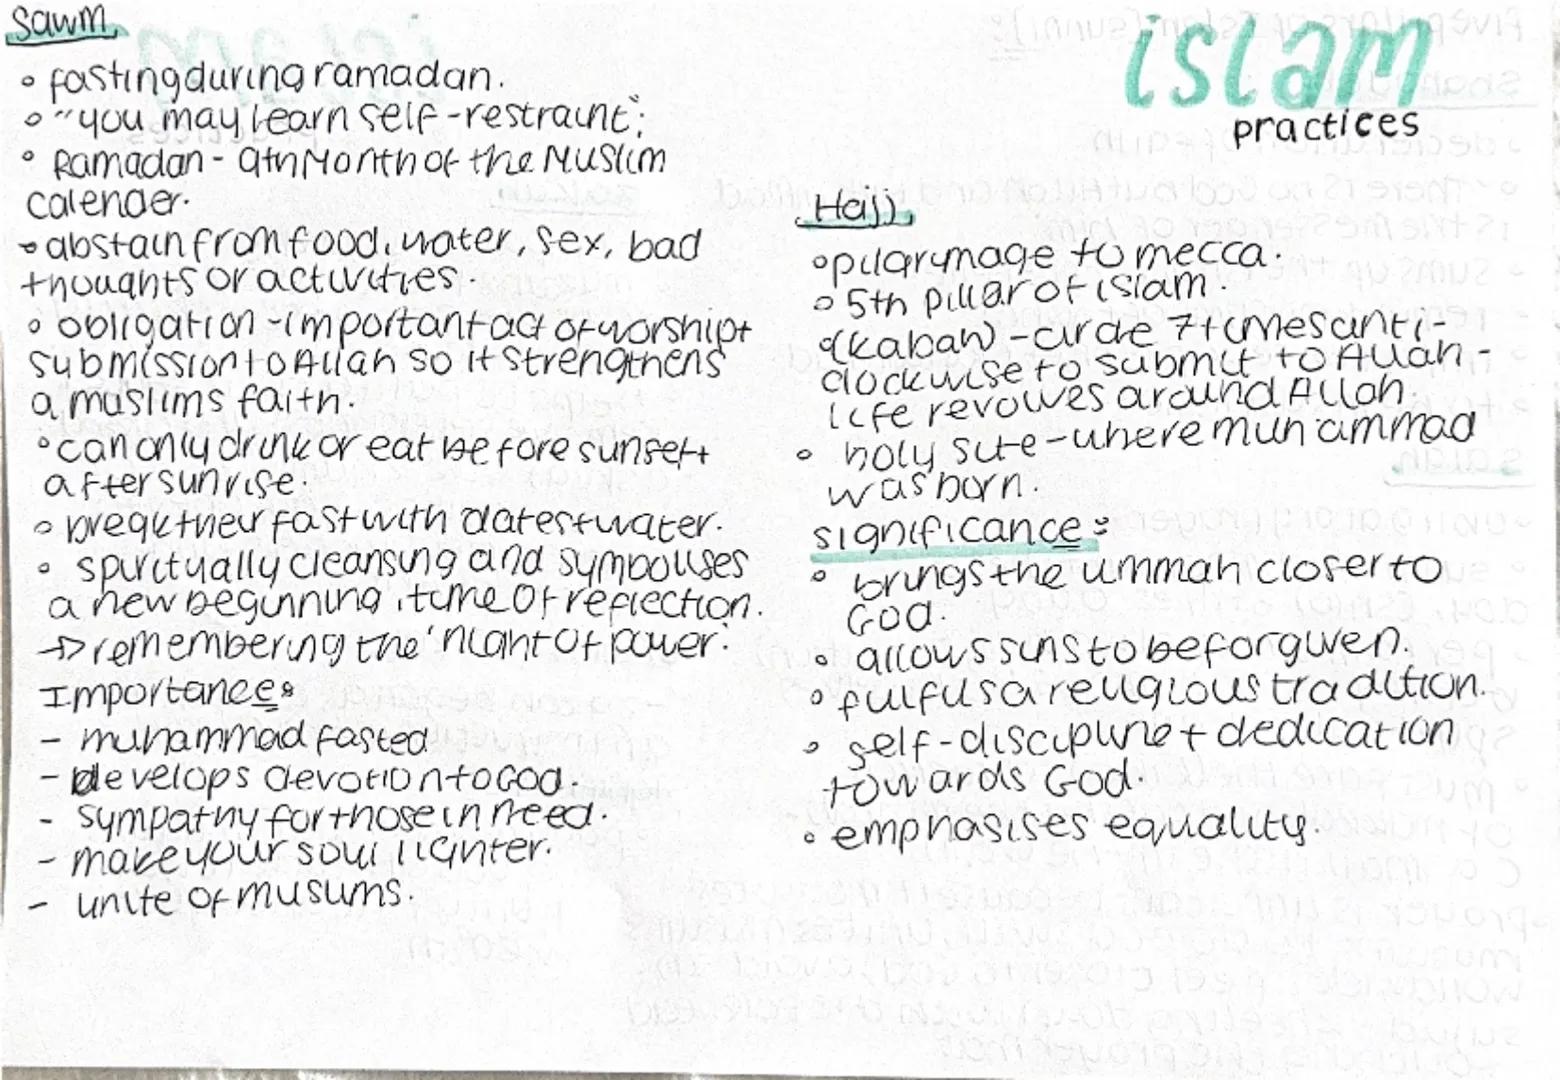 Sawm
◦ fasting during ramadan.
◦ "you may learn self-restraint"
◦ Ramadan - 9th Month of the Muslim
calender.
◦ abstain from food, water, sex, bad
thoughts or activities.
◦ obligation - important act of worship +
submission to Allah so it strengthens
a muslims faith.
◦ can only drink or eat before sunset +
after sunrise.
◦ break their fast with dates + water.
◦ spiritually cleansing and symbolises
a new beginning, time of reflection.
→ remembering the 'night of power'.
Importance:
- muhammad fasted
- develops devotion to God.
- sympathy for those in need.
- make your soul lighter.
- unite of muslims.
islam
practices
Hajj
◦ pilgrimage to mecca.
◦ 5th pillar of islam.
◦ (kabah) - circle 7 times anti-
clockwise to submit to Allah -
life revolves around Allah.
◦ holy site - where muhammad
was born.
significance:
◦ brings the ummah closer to
God.
◦ allows sins to be forgiven.
◦ fulfils a religious tradition.
◦ self-discipline + dedication
towards God.
◦ emphasises equality.